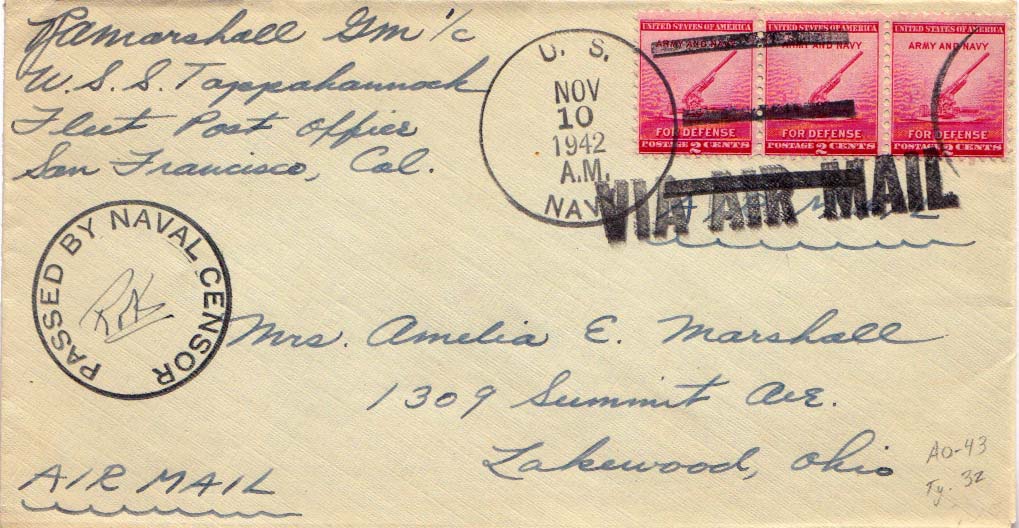 RAMarshall Gm 1/c
U.S.S. Tappahannock
Fleet Post Office
San Francisco, Cal.
U. S.
NOV
10
1942
A.M.
NAVY
UNITED STATES OF AMERICA
ARMY AND NAVY
FOR DEFENSE
POSTAGE 2 CENTS
UNITED STATES OF AMERICA
ARMY AND NAVY
FOR DEFENSE
POSTAGE 2 CENTS
UNITED STATES OF AMERICA
ARMY AND NAVY
FOR DEFENSE
POSTAGE 2 CENTS
VIA AIR MAIL
PASSED BY NAVAL CENSOR
Mrs. Amelia E. Marshall
1309 Summit Ave.
Lakewood, Ohio
AIR MAIL
AO-43
Ty. 32